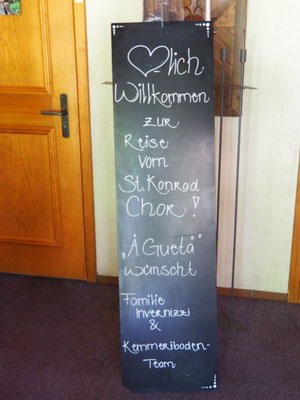 ♡lich
Willkommen
zur
Reise
vom
St. Konrad
Chor!
„Ä Guetä"
wünscht
Familie
Invernizzi
&
Kemmeriboden-
Team